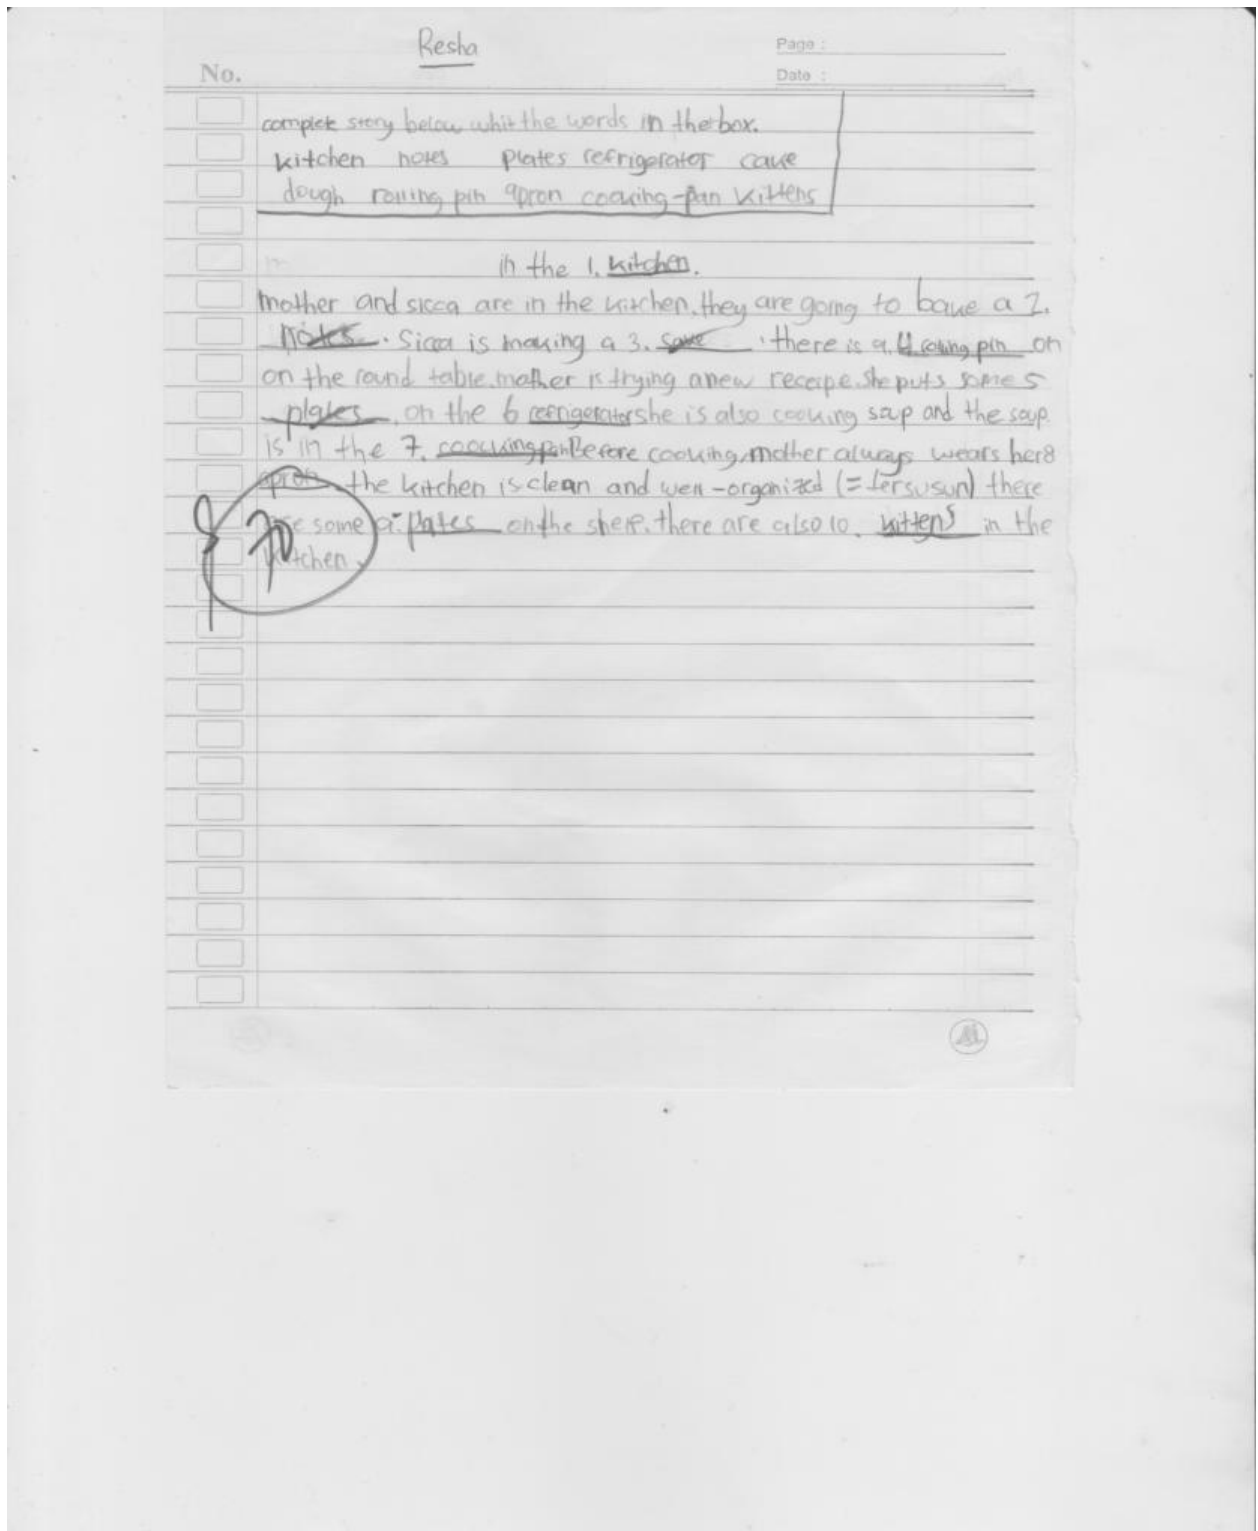 Resha
Page :
No.
Date :
complete story below whit the words in the box.
kitchen notes plates refrigerator cake
dough rolling pin apron cooking-pan kittens
in the 1. kitchen.
mother and sicca are in the kitchen. they are going to bake a 2.
notes. Sicca is making a 3. cake. there is a. 4. rolling pin on
on the round table. mother is trying a new receipe. she puts some 5
plates, on the 6 refrigerator she is also cooking soup and the soup
is in the 7. coocking pan Before cooking, mother always wears her 8
apron the kitchen is clean and well-organized (= tersusun) there
some 9. plates on the shelf. there are also 10. kittens in the
kitchen.
70